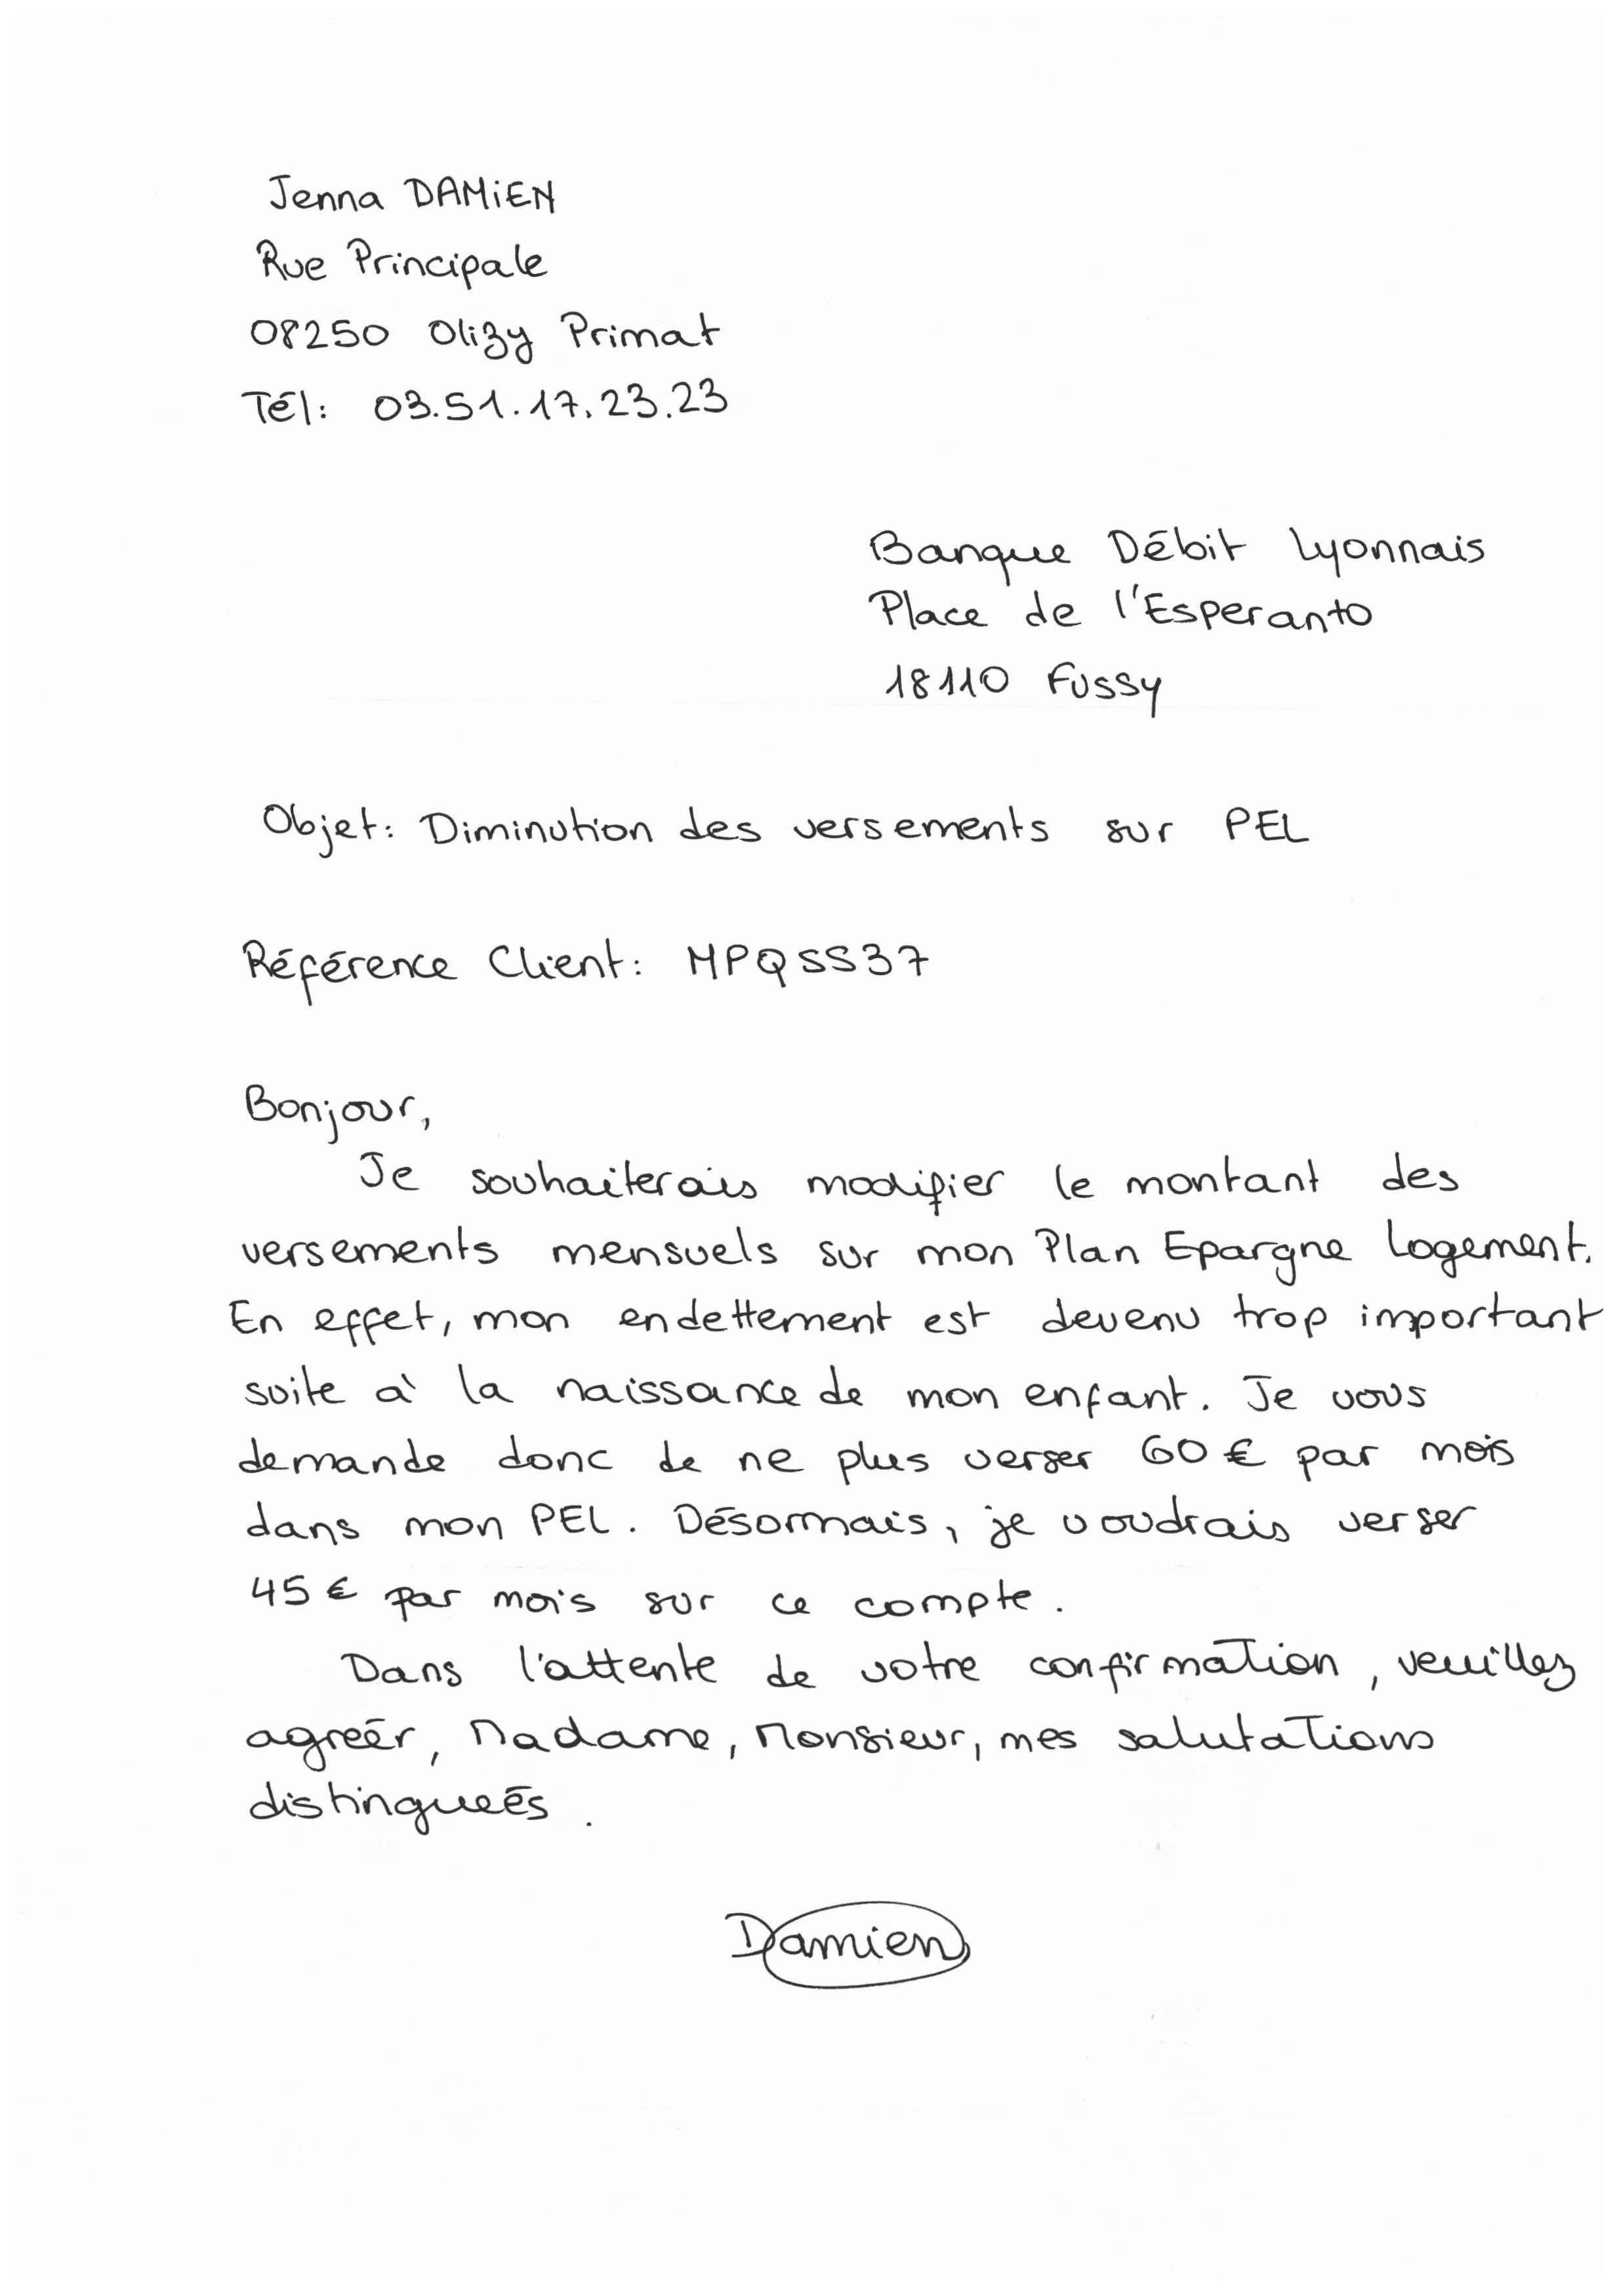 Jenna DAMiEN
Rue Principale
08250 Olizy Primat
Tél: 03.51.17.23.23
Banque Débit Lyonnais
Place de l'Esperanto
18110 Fussy
Objet: Diminution des versements sur PEL
Référence Client: MPQSS37
Bonjour,
Je souhaiterais modifier le montant des
versements mensuels sur mon Plan Epargne Logement.
En effet, mon endettement est devenu trop important
suite à la naissance de mon enfant. Je vous
demande donc de ne plus verser 60 € par mois
dans mon PEL. Désormais, je voudrais verser
45 € par mois sur ce compte.
Dans l'attente de votre confirmation, veuillez
agréer, Madame, Monsieur, mes salutations
distinguées.
Damien